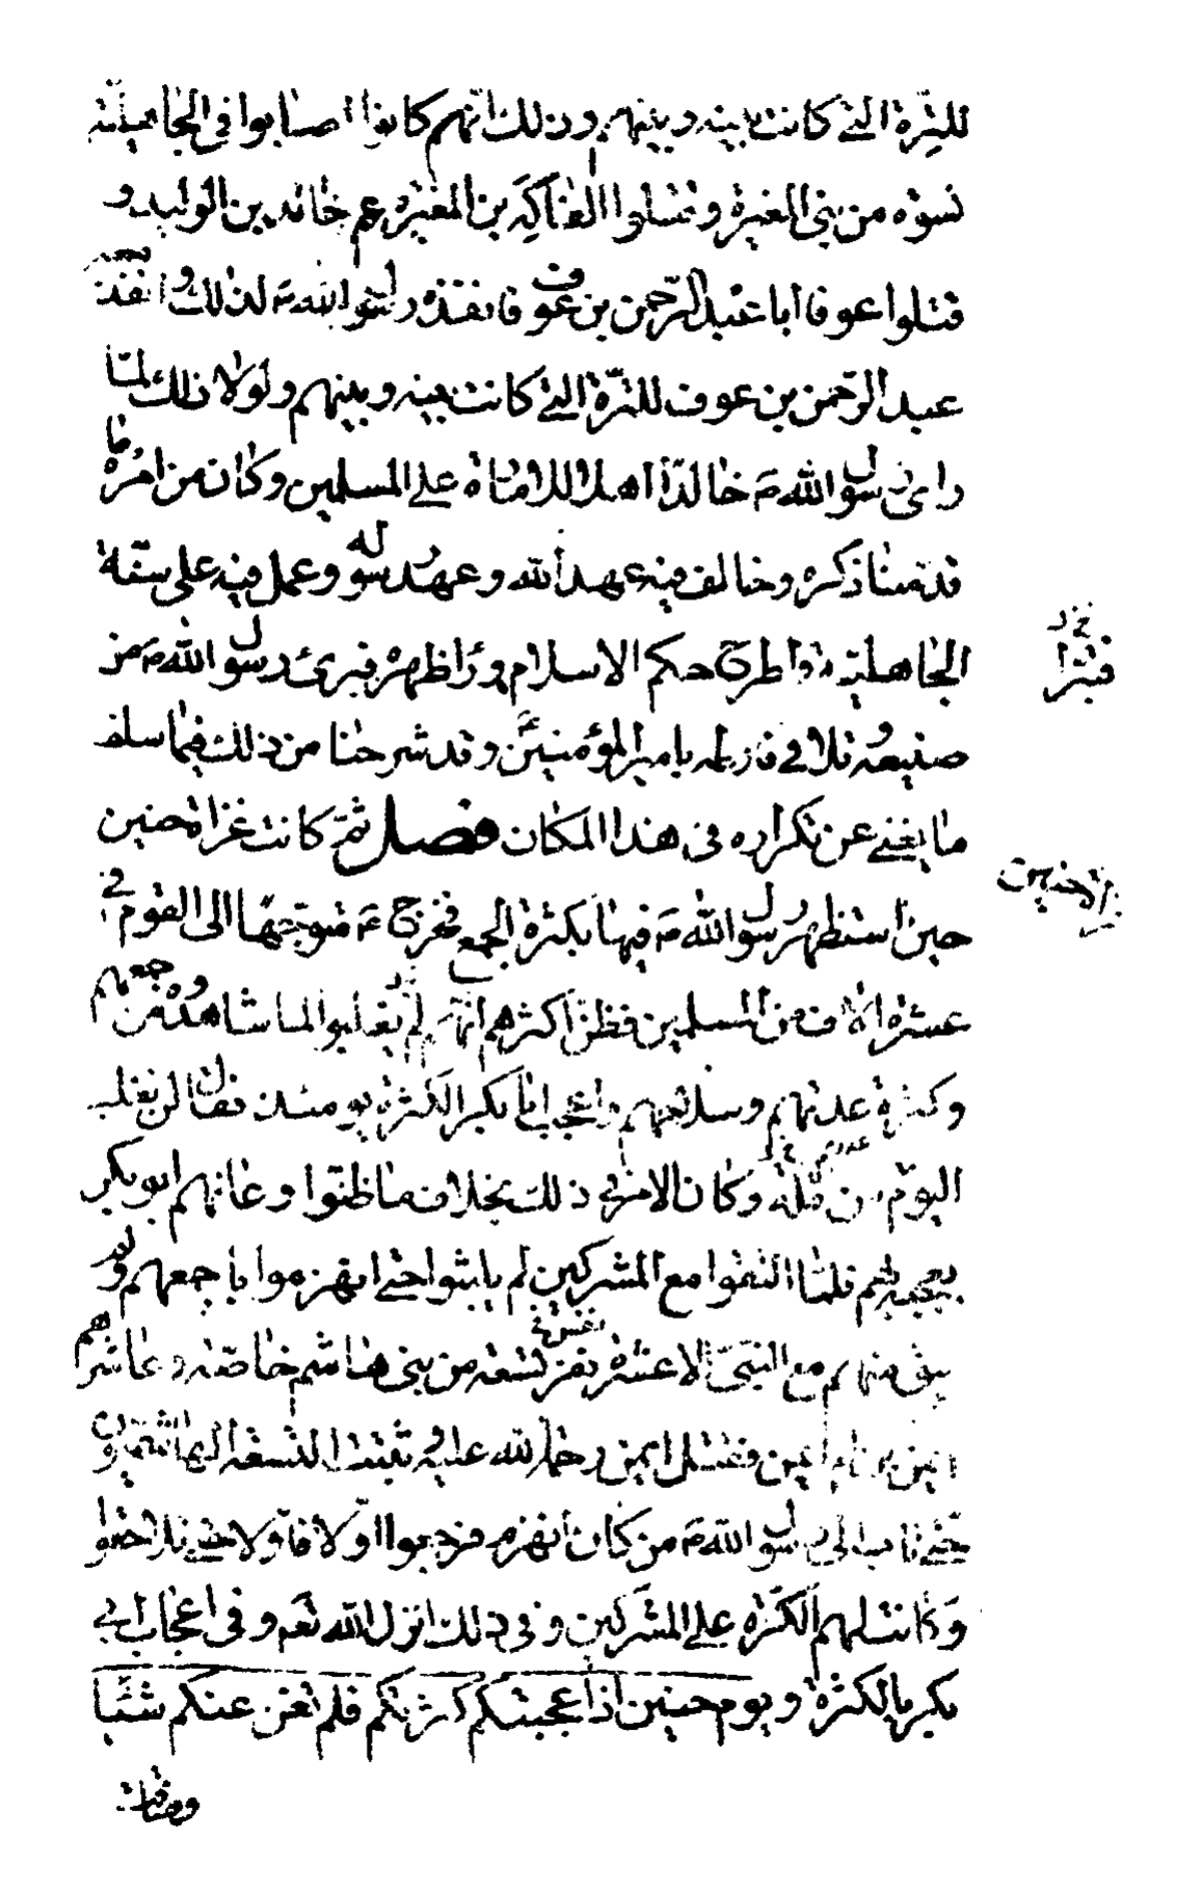 للترة التي كانت بينه وبينهم وذلك انهم كانوا اصابوا في الجاهلية
نسوة من بني المغيرة وقتلوا الفاكه بن المغيرة عم خالد بن الوليد و
قتلوا عوفا ابا عبد الرحمن بن عوف فانفذه رسول الله ص لذلك وانفذ معه
عبد الرحمن بن عوف للترة التي كانت بينه وبينهم ولولا ذلك لما
راى رسول الله ص خالدا اهلا للامارة على المسلمين وكان من امره ما
قدمنا ذكره وخالف فيه عهد الله وعهد رسوله وعمل فيه على سنة
الجاهلية واطرح حكم الاسلام وراء ظهره فبرئ رسول الله ص من
فتبرا خ ر
صنيعه وتلافى فارطه بامير المؤمنين ع وقد شرحنا من ذلك فيما سلف
ما يغني عن تكراره في هذا المكان فصل ثم كانت غزاة حنين
غزاة حنين
حين استظهر رسول الله ص فيها بكثرة الجمع فخرج ع متوجها الى القوم في
عشرة الاف من المسلمين فظن اكثرهم انهم لم يغلبوا لما شاهدوه من جمعهم
وكثرة عدتهم وسلاحهم واعجب ابا بكر الكثرة يومئذ فقال لن نغلب
اليوم من قلة وكان الامر في ذلك بخلاف ما ظنوا وعانهم ابو بكر
بعجبه بهم فلما التقوا مع المشركين لم يلبثوا حتى انهزموا باجمعهم ولم
يبق منهم مع النبي الا عشرة نفر تسعة من بني هاشم خاصة وعاشرهم
ايمن بن ام ايمن فقتل ايمن رحمة الله عليه وثبتت التسعة الهاشميون
حتى ثاب الى رسول الله ص من كان انهزم فرجعوا اولا فاولا حتى تلاحقوا
وكانت لهم الكثرة على المشركين وفي ذلك انزل الله تعه وفي اعجاب ابي
بكر بالكثرة ويوم حنين اذ اعجبتكم كثرتكم فلم تغن عنكم شيئا
وضاقت